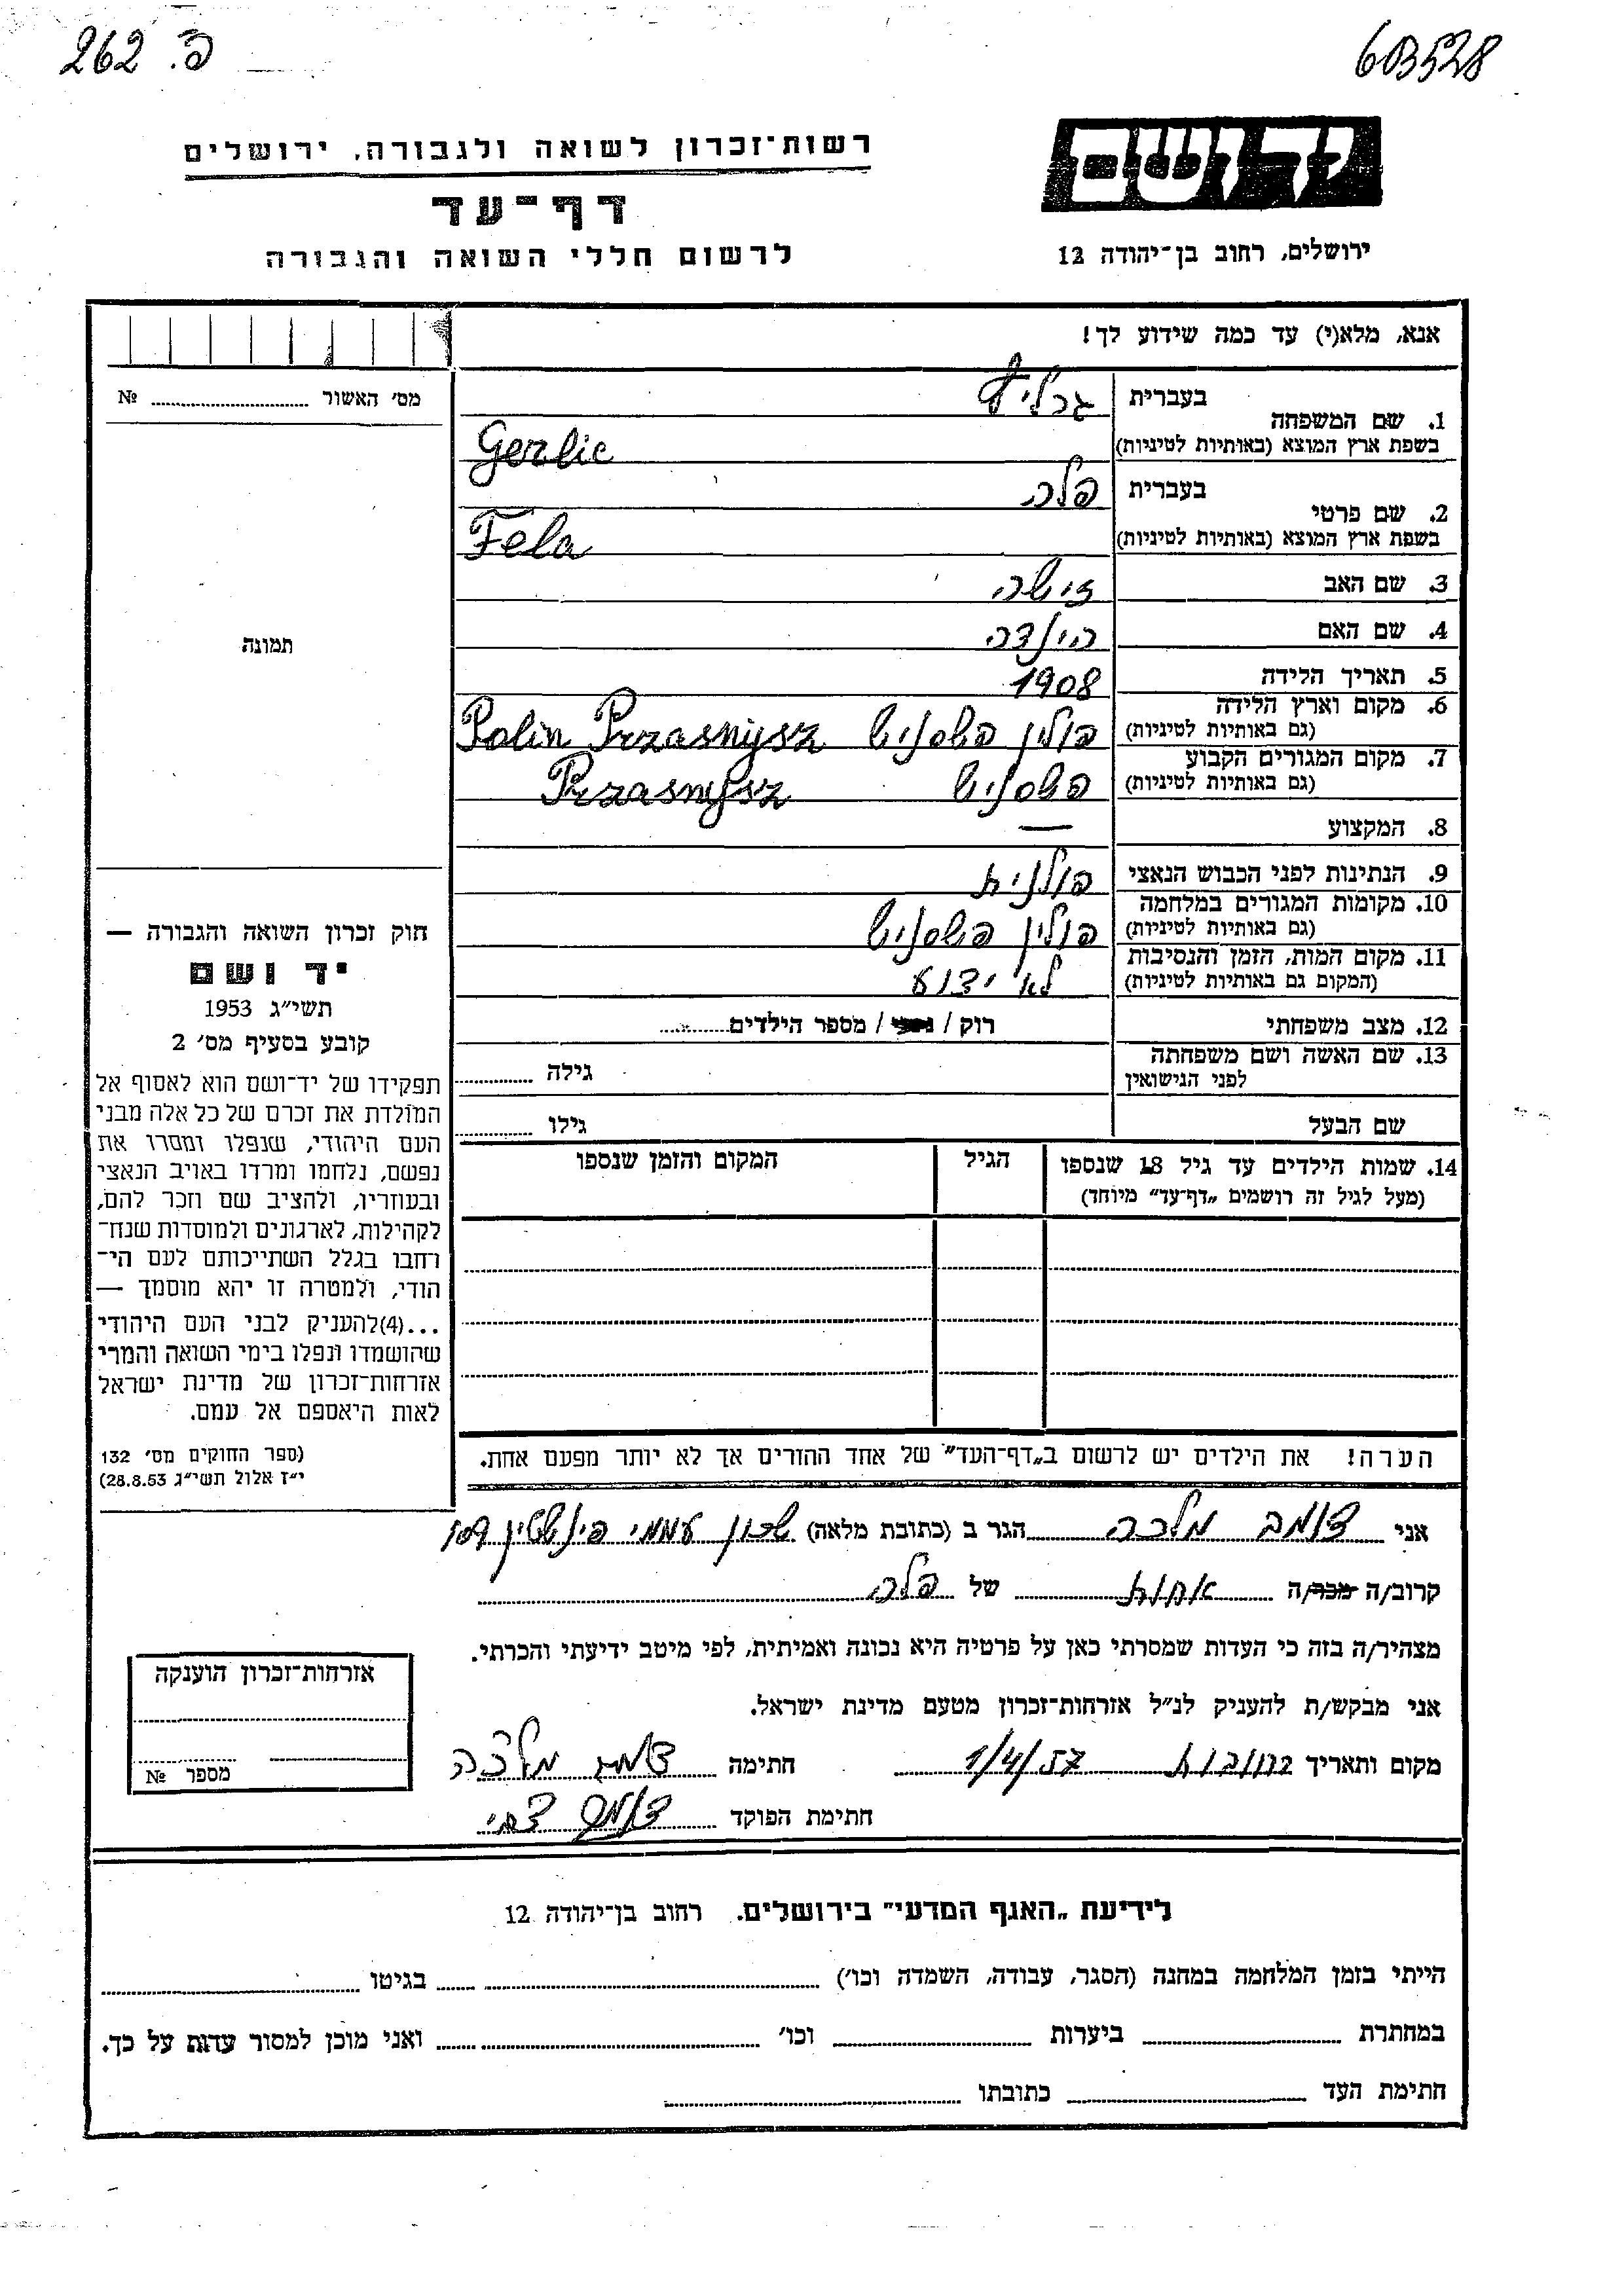 262 .פ
603528
יד ושם
רשות־זכרון לשואה ולגבורה, ירושלים
דף־עד
לרשום חללי השואה והגבורה
ירושלים, רחוב בן־יהודה 12
אנא, מלא(י) עד כמה שידוע לך!
מס׳ האשור № 
1. שם המשפחה
בעברית
גרליץ
בשפת ארץ המוצא (באותיות לטיניות)
Gerlic
2. שם פרטי
בעברית
פלה
בשפת ארץ המוצא (באותיות לטיניות)
Fela
3. שם האב
זישה
4. שם האם
הינדה
5. תאריך הלידה
1908
6. מקום וארץ הלידה
(גם באותיות לטיניות)
פולין פשסניש Polin Przasnysz
7. מקום המגורים הקבוע
(גם באותיות לטיניות)
פשסניש Przasnysz
8. המקצוע
—
9. הנתינות לפני הכבוש הנאצי
פולנית
10. מקומות המגורים במלחמה
(גם באותיות לטיניות)
פולין פשסניש
11. מקום המות, הזמן והנסיבות
(המקום גם באותיות לטיניות)
לא ידוע
12. מצב משפחתי
רוק / / מספר הילדים
13. שם האשה ושם משפחתה
לפני הנישואין
גילה
שם הבעל
גילו
14. שמות הילדים עד גיל 18 שנספו
(מעל לגיל זה רושמים „דף־עד״ מיוחד)
הגיל
המקום והזמן שנספו
תמונה
חוק זכרון השואה והגבורה —
יד ושם
תשי״ג 1953
קובע בסעיף מס׳ 2
תפקידו של יד־ושם הוא לאסוף אל
המולדת את זכרם של כל אלה מבני
העם היהודי, שנפלו ומסרו את
נפשם, נלחמו ומרדו באויב הנאצי
ובעוזריו, ולהציב שם וזכר להם,
לקהילות, לארגונים ולמוסדות שנח־
רחבו בגלל השתייכותם לעם הי־
הודי, ולמטרה זו יהא מוסמך —
...(4)להעניק לבני העם היהודי
שהושמדו ונפלו בימי השואה והמרי
אזרחות־זכרון של מדינת ישראל
לאות היאספם אל עמם.
(ספר החוקים מס׳ 132
י״ז אלול תשי״ג 28.8.53)
הערה! את הילדים יש לרשום ב„דף־העד״ של אחד ההורים אך לא יותר מפעם אחת.
אני דומב מלכה הגר ב (כתובת מלאה) שכון עממי
קרוב/ה מכר/ה אחות של פלה
מצהיר/ה בזה כי העדות שמסרתי כאן על פרטיה היא נכונה ואמיתית, לפי מיטב ידיעתי והכרתי.
אני מבקש/ת להעניק לנ״ל אזרחות־זכרון מטעם מדינת ישראל.
מקום ותאריך רחובות 1/4/57 חתימה דומב מלכה
חתימת הפוקד דומב
אזרחות־זכרון הוענקה
מספר №
לידיעת „האגף המדעי״ בירושלים. רחוב בן־יהודה 12
הייתי בזמן המלחמה במחנה (הסגר, עבודה, השמדה וכו׳) בגיטו
במחתרת ביערות וכו׳ ואני מוכן למסור עדות על כך.
חתימת העד כתובתו